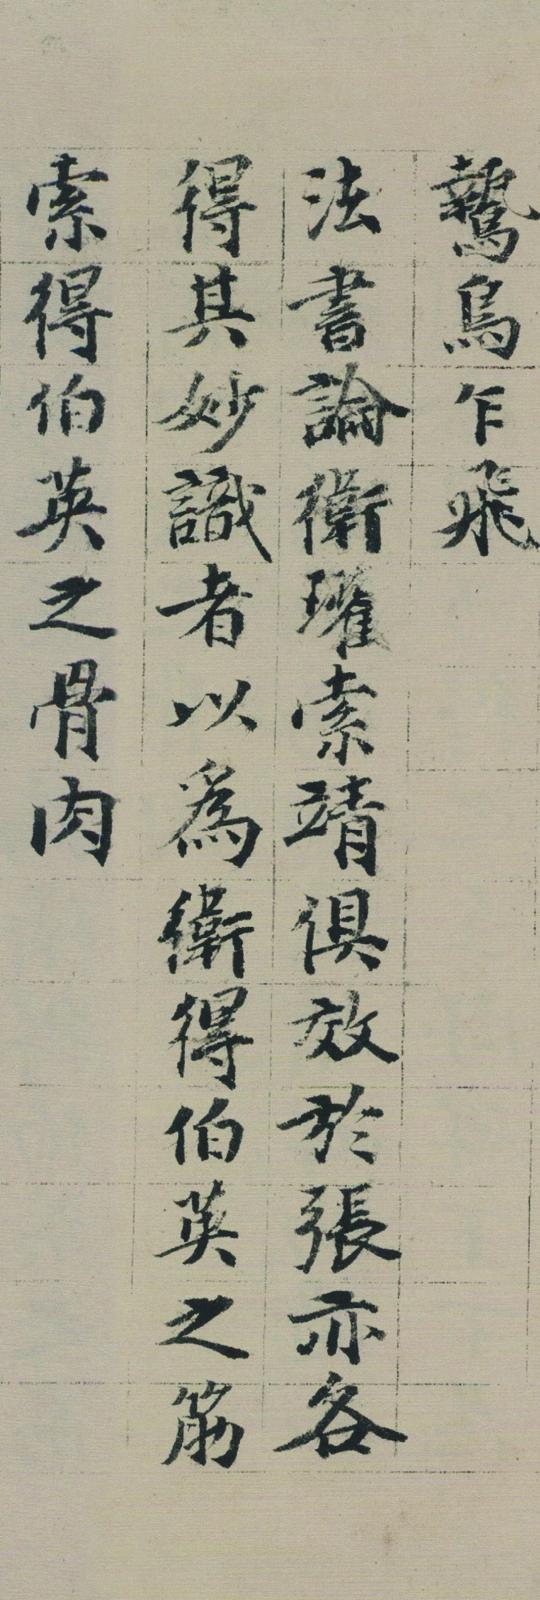 鷙鳥乍飛
法書論衛瓘索靖俱效於張亦各
得其妙識者以為衛得伯英之筋
索得伯英之骨肉